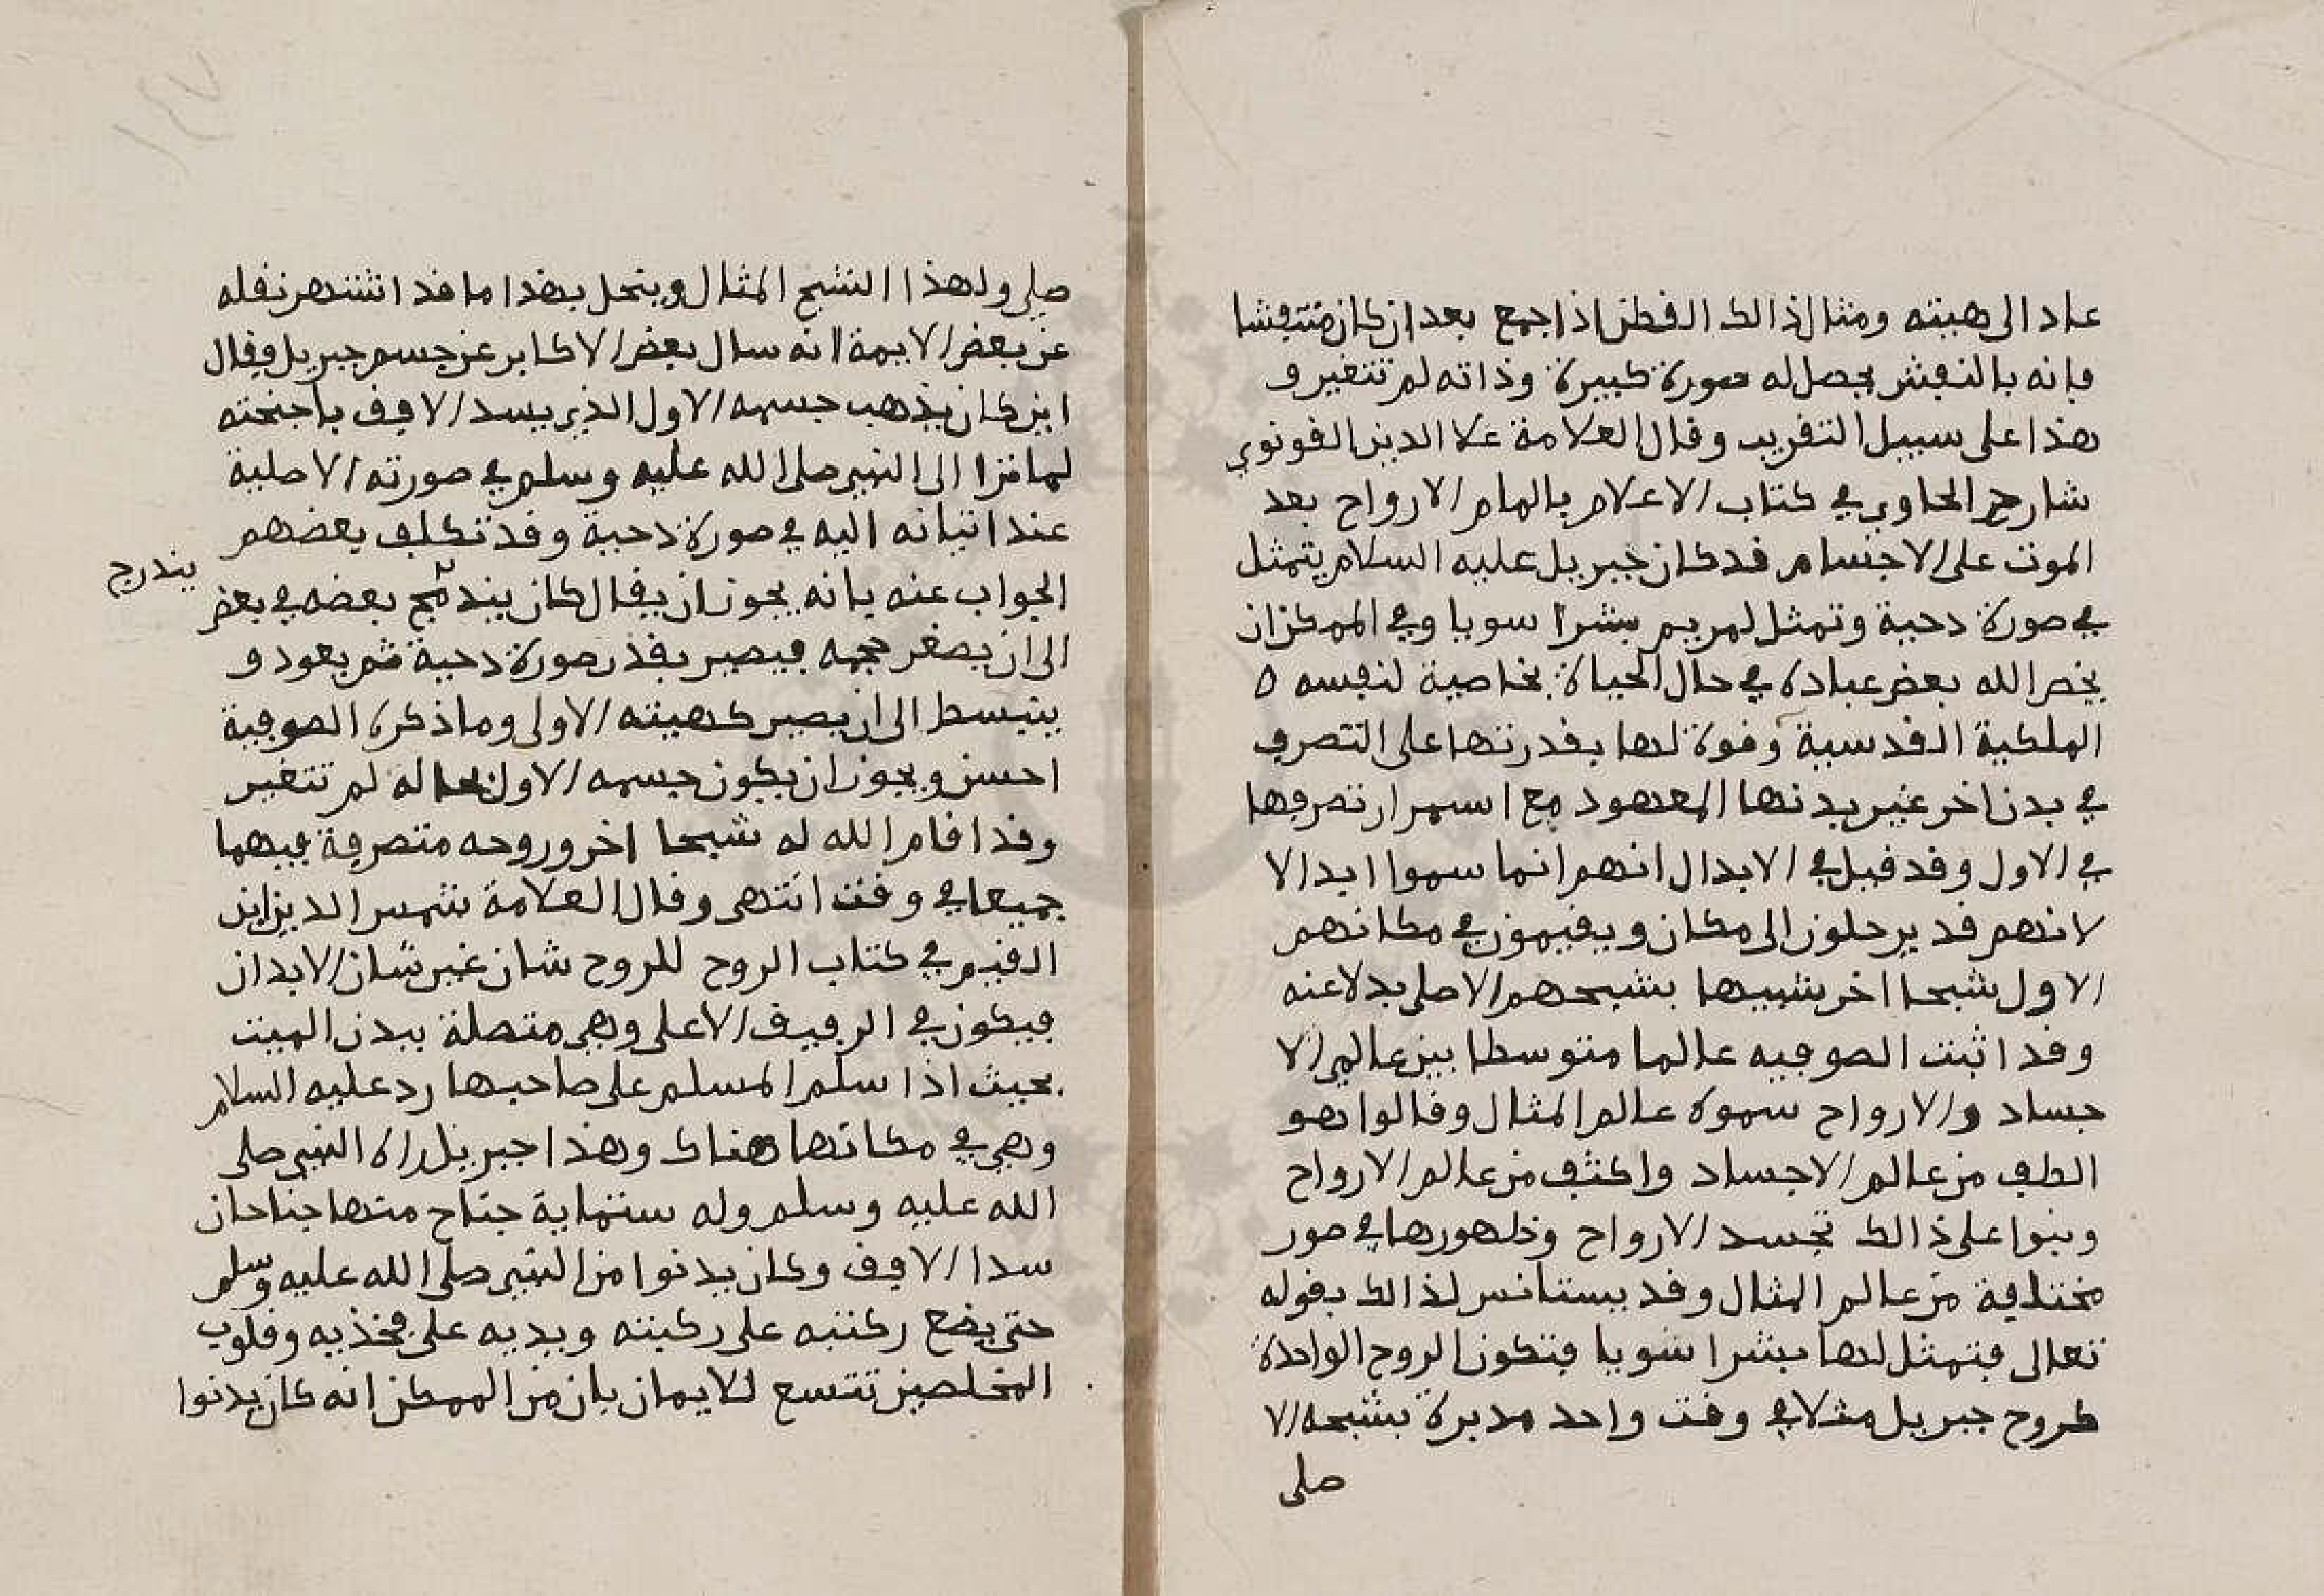 عاد الى هيئته ومثال ذالك القطن اذا جمع بعد ان كان منتفشا
فانه بالنفش يحصل له صورة كبيرة وذاته لم تتغير و
هذا على سبيل التقريب وقال العلامة علا الدين القونوي
شارح الحاوي في كتاب الاعلام بالمام الارواح بعد
الموت على الاجسام قد كان جبريل عليه السلام يتمثل
في صورة دحية وتمثل لمريم بشرا سويا وفي الممكن ان
يخص الله بعض عباده في حال الحياة بخاصية لنفسه ه
الملكية القدسية وقوة لها بقدرتها على التصرف
في بدن اخر غير بدنها المعهود مع اسمرار تصرفها
في الاول وقد قيل في الابدال انهم انما سموا ابدالا
لانهم قد يرحلون الى مكان ويقيمون في مكانهم
الاول شبحا اخر شبيها بشبحهم الاصلى بدلا عنه
وقد اثبت الصوفيه عالما متوسطا بين عالمي الا
جساد والارواح سموه عالم المثال وقالوا هو
الطف من عالم الاجساد واكثف من عالم الارواح
وبنوا على ذالك تجسد الارواح وظهورها في صور
مختلفة من عالم المثال وقد يستانس لذالك بقوله
تعالى فتمثل لها بشرا سويا فتكون الروح الواحدة
كروح جبريل مثلا في وقت واحد مدبرة بشبحه الا
صلى
صلي ولهذا الشبح المثال وينحل بهذا ما قد اشتهر نقله
عن بعض الايمة انه سال بعض الاكابر عن جسم جبريل وقال
اين كان يذهب جسمه الاول الذي يسد الافق باجنحته
لما تزا الى النبي صلى الله عليه وسلم في صورته الاصلية
عند اتيانه اليه في صورة دحية وقد تكلف بعضهم
الجواب عنه بانه يجوز ان يقال كان يندمج بعضه في بعض
يندرج
الى ان يصغر حجمه فيصير بقدر صورة دحية ثم يعود و
ينبسط الى ان يصير كهيئته الاولى وما ذكره الصوفية
احسن ويجوز ان يكون جسمه الاول بحاله لم تتغير
وقد اقام الله له شبحا اخر وروحه متصرفة فيهما
جميعا في وقت انتهى وقال العلامة شمس الدين ابن
القيم في كتاب الروح للروح شان غير شان الابدان
فيكون في الرفيق الاعلى وهي متصلة ببدن الميت
بحيث اذا سلم المسلم على صاحبها رد عليه السلام
وهي في مكانها هناك وهذا جبريل راه النبي صلى
الله عليه وسلم وله ستماية جناح منها جناحان
سدا الافق وكان يدنوا من النبي صلى الله عليه وسلم
حتى يضع ركبتيه على ركبتيه ويديه على فخذيه وقلوب
المخلصين تتسع للايمان بان من الممكن انه كان يدنوا